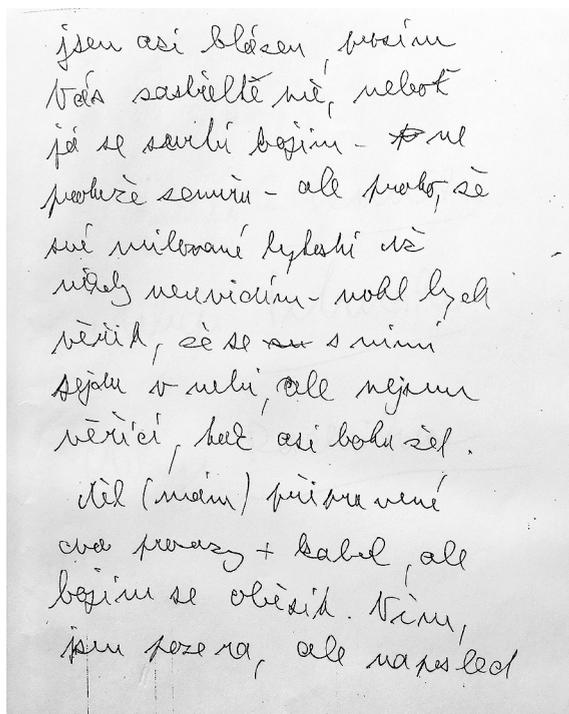 jsem asi blázen, prosím
Vás zastřelte mě, neboť
já se smrti bojím - ne
protože zemru - ale proto, že
své milované bytosti už
nikdy neuvidím - mohl bych
věřit, že se s nimi
sejdu v nebi, ale nejsem
věřící, tak asi bohužel.
Měl (mám) připravené
dva provazy + kabel, ale
bojím se oběsit. Vím,
jsem pozera, ale naposled